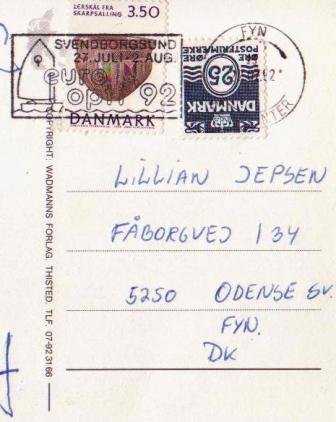 LERSKÅL FRA
SKARPSALLING 3.50
SVENDBORGSUND
27. JULI - 2. AUG.
euro
opti 92
DANMARK
FYN
ØRE
POSTFRIMÆRKE
ØRE
25
DANMARK
LILLIAN JEPSEN
FÅBORGVEJ 134
5250 ODENSE SV.
FYN.
DK
COPYRIGHT: WADMANNS FORLAG. THISTED. TLF. 07-923166